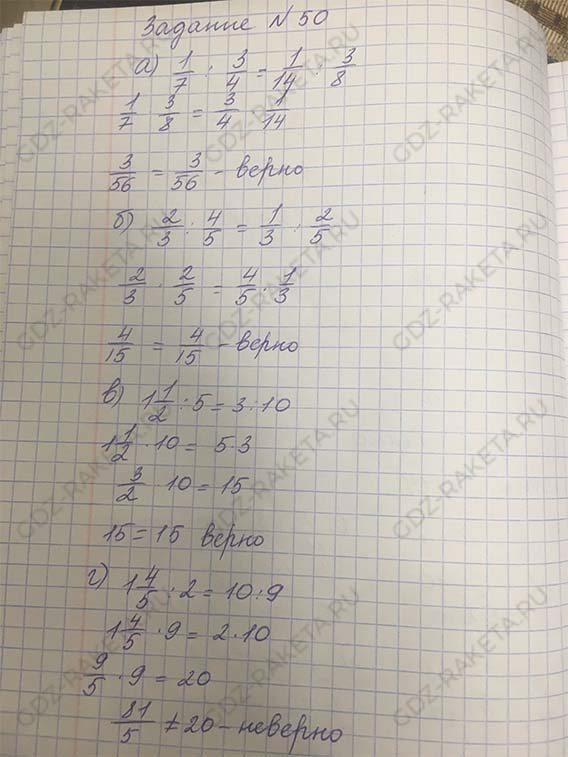 Задание №50
а) 1/7 : 3/4 = 1/14 : 3/8
1/7 · 3/8 = 3/4 · 1/14
3/56 = 3/56 - верно
б) 2/3 : 4/5 = 1/3 : 2/5
2/3 · 2/5 = 4/5 · 1/3
4/15 = 4/15 - верно
в) 1 1/2 : 5 = 3 : 10
1 1/2 · 10 = 5·3
3/2 · 10 = 15
15 = 15 верно
г) 1 4/5 : 2 = 10 : 9
1 4/5 · 9 = 2·10
9/5 · 9 = 20
81/5 ≠ 20 - неверно
GDZ-RAKETA.RU